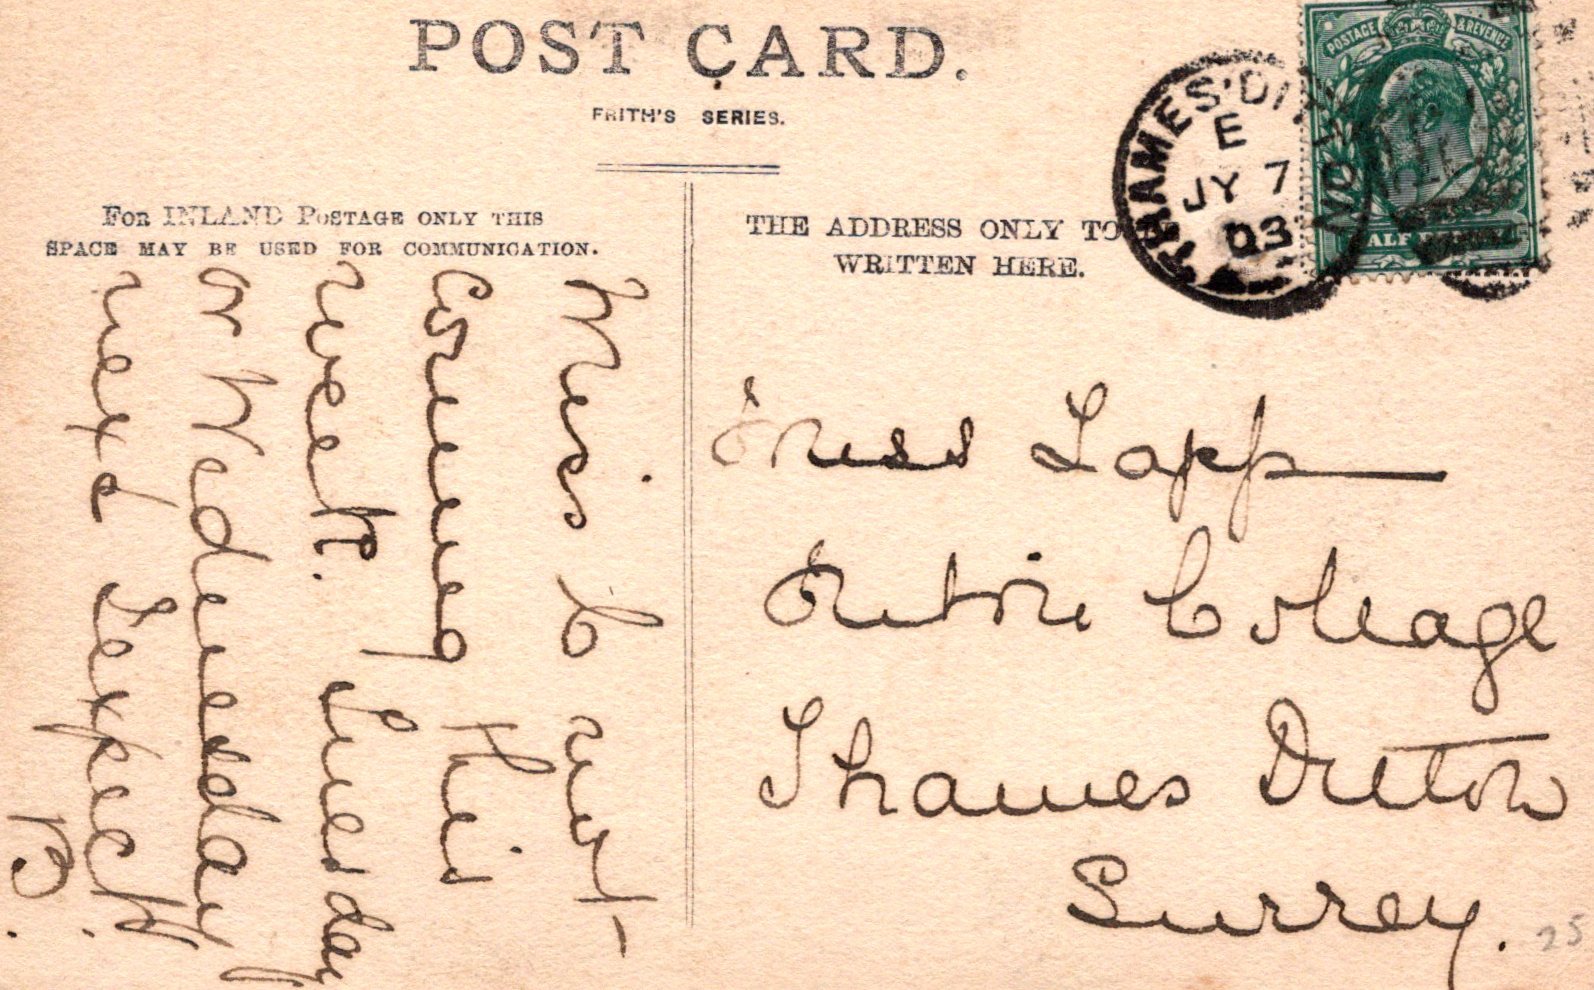 POST CARD.
FRITH'S SERIES.
FOR INLAND POSTAGE ONLY THIS
SPACE MAY BE USED FOR COMMUNICATION.
Miss C. not
coming this
week. Tuesday
or Wednesday
next I expect.
B.
THE ADDRESS ONLY TO
WRITTEN HERE.
Miss Lapp
Cottage
Thames Ditton
Surrey.
25
THAMES DITTON
E
JY 7
03
POSTAGE & REVENUE
HALF PENNY